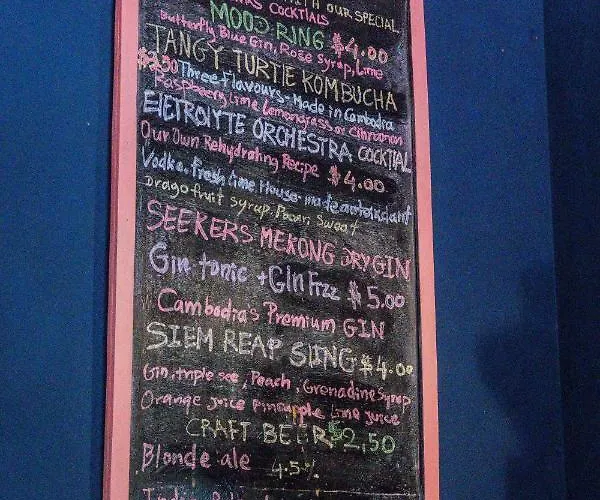 WITH OUR SPECIAL
COCKTIALS
MOOD RING $4.00
Butterfly Blue Gin, Rose Syrup, Lime
TANGY TURTLE KOMBUCHA
$2.50 Three Flavours - Made in Cambodia
Raspberry Lime Lemongrass or Cinnamon
ElETROLYTE ORCHESTRA COCKTIAL
Our Own Rehydrating Recipe $4.00
Vodka, Fresh Lime, House-made
Dragofruit Syrup, Pocari Sweat
SEEKERS MEKONG DRY GIN
Gin tonic + GIn Fizz $5.00
Cambodia's Premium GIN
SIEM REAP SLING $4.00
Gin, triple sec, Peach, Grenadine Syrup
Orange Juice Pineapple Lime Juice
CRAFT BEER $2,50
Blonde ale 4.5%